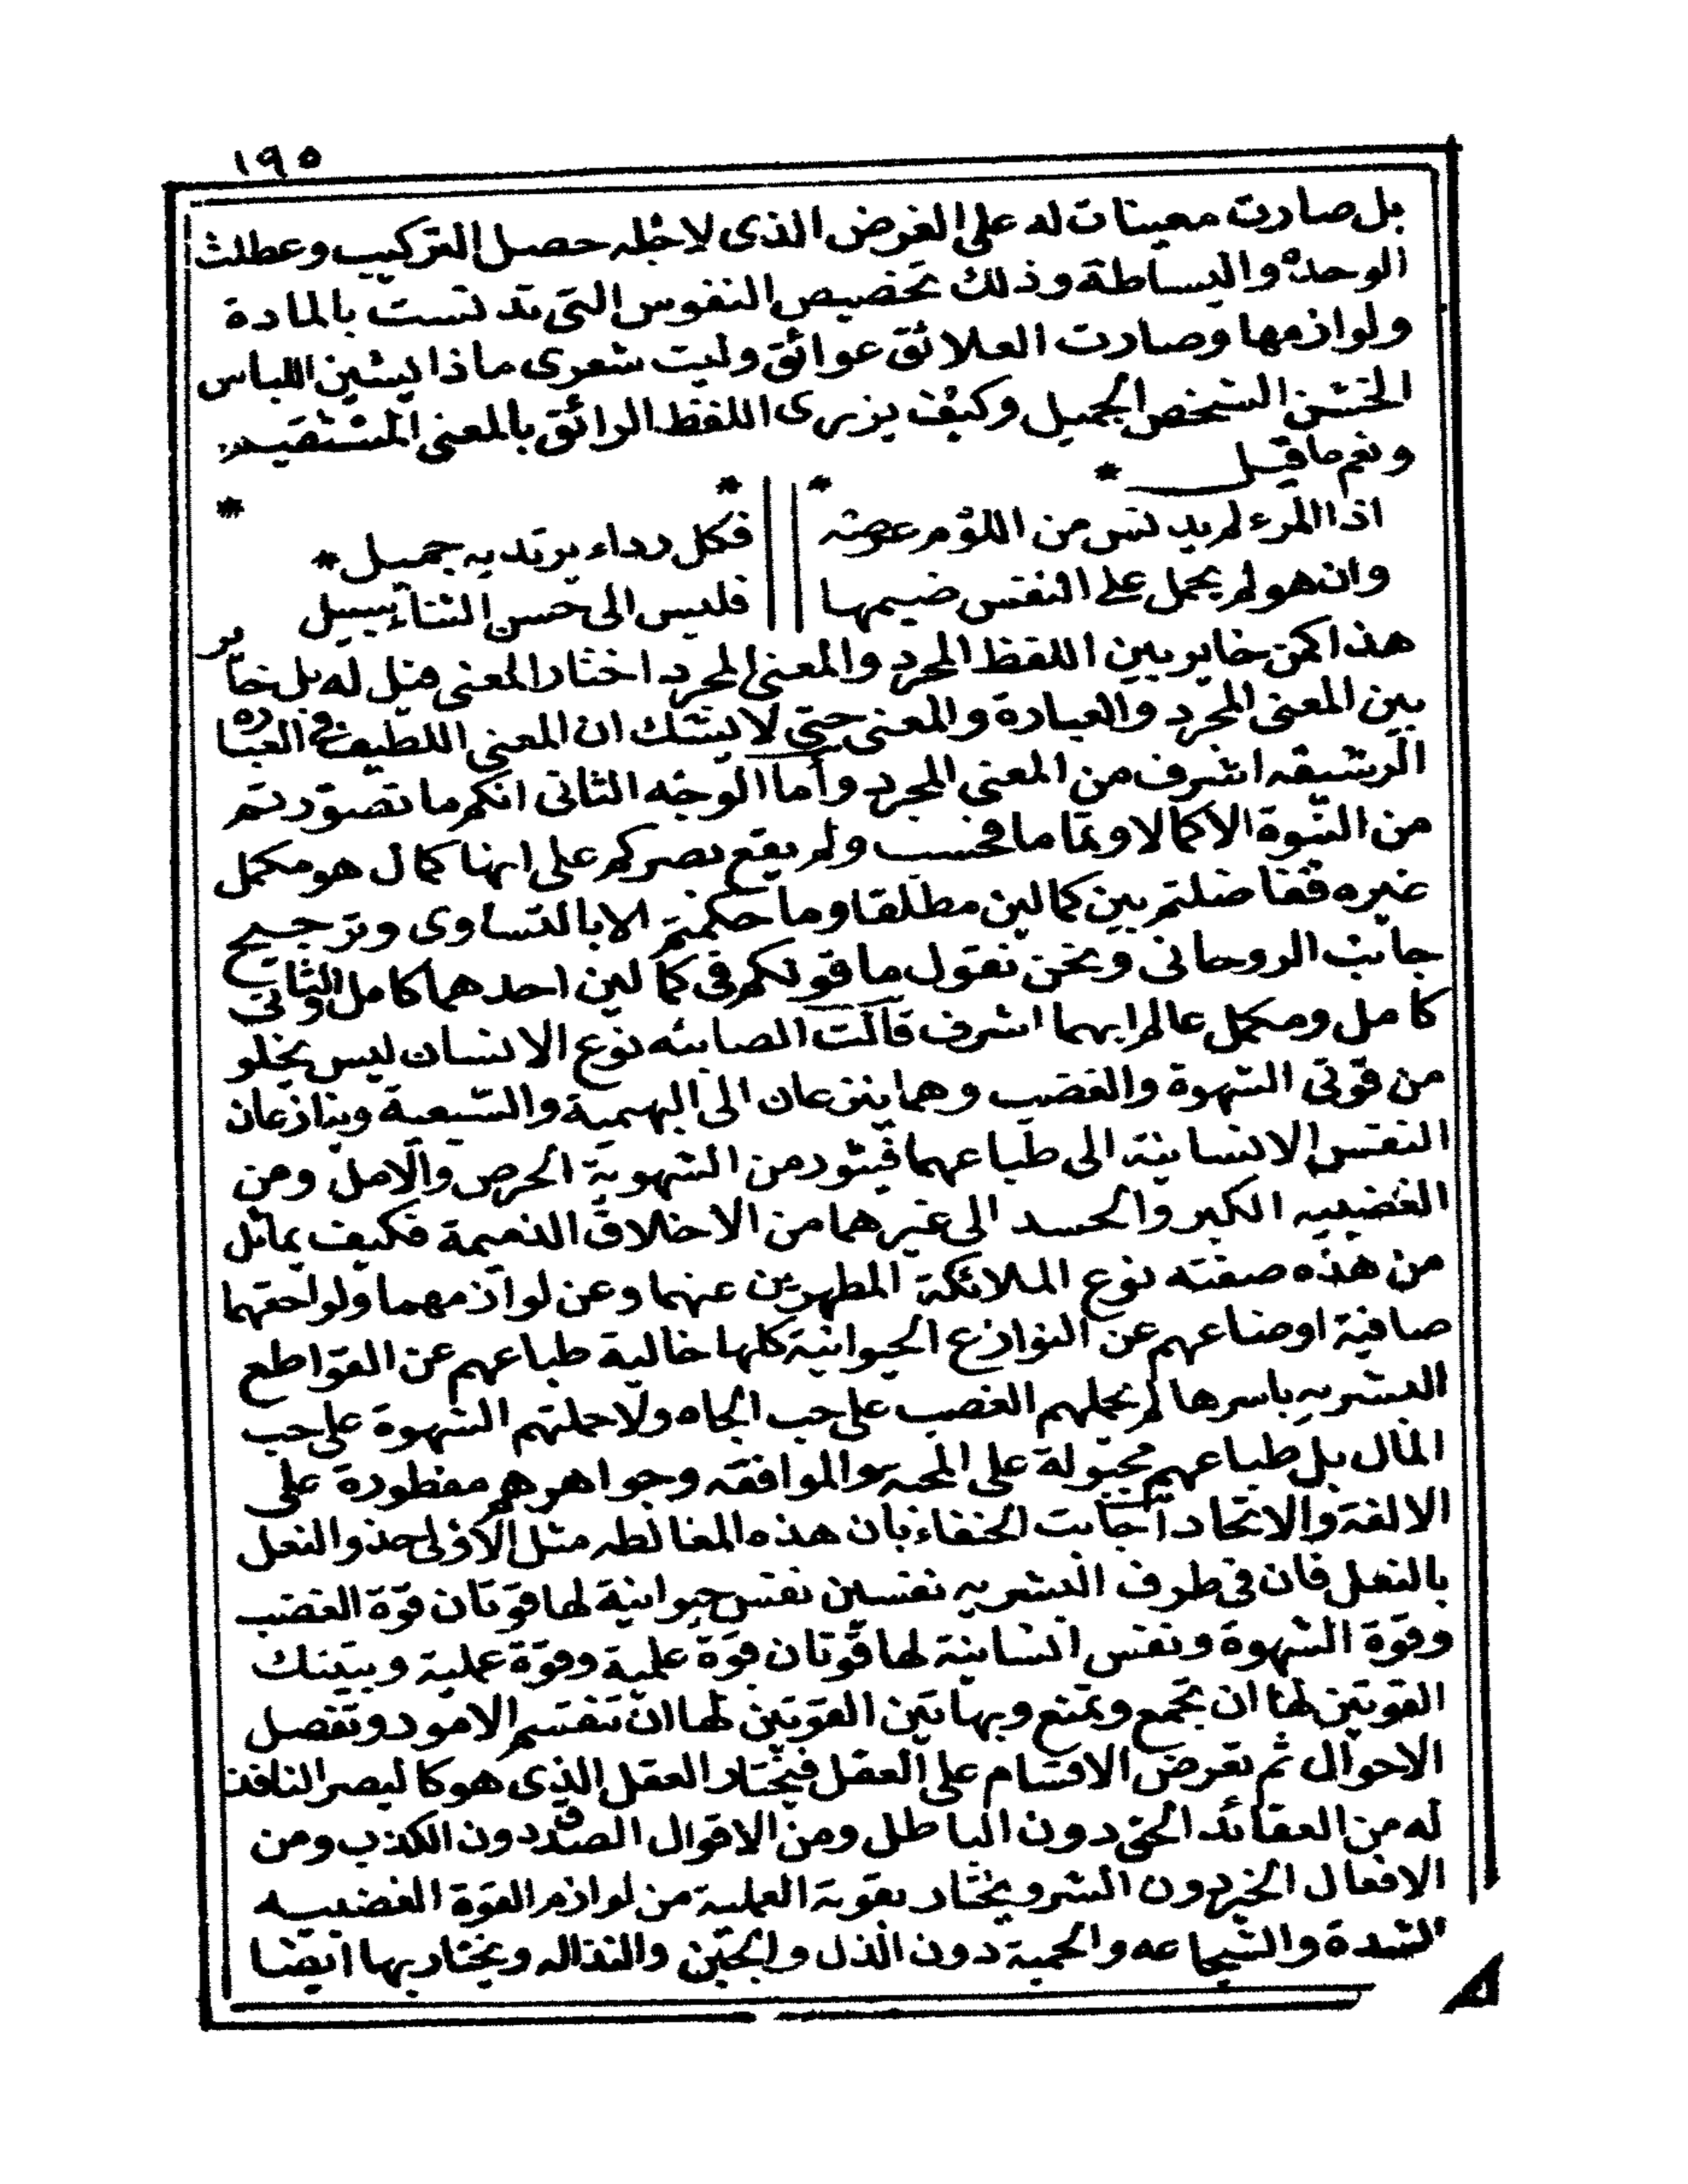 ١٩٥
بل صارت معينات له على الغرض الذى لاجله حصل التركيب وعطلت
الوحدة والبساطة وذلك تخضيص النفوس التى تدنست بالمادة
ولوازمها وصارت العلائق عوائق وليت شعرى ماذا يشين اللباس
الخشن الشخص الجميل وكيف يزرى اللفظ الرائق بالمعنى المستقيم
ونعم ما قيل *
اذا المرء لم يدنس من اللؤم عرضه * || * فكل رداء يرتديه جميل *
وان هو لم يحمل على النفس ضيمها || فليس الى حسن الثناء سبيل
هذا كمن خاير بين اللفظ المجرد والمعنى المجرد اختار المعنى قيل له بل خاير
بين المعنى المجرد والعبارة والمعنى حتى لا يشك ان المعنى اللطيف فى العبارة
الرشيقه اشرف من المعنى المجرد وأما الوجه الثانى انكم ما تصورتم
من النبوة الا كمالا وتماما فحسب ولم يقع بصركم على انها كمال هو مكمل
غيره ففاضلتم بين كمالين مطلقا وما حكمتم الا بالتساوى وترجيح
جانب الروحانى ونحن نقول ما قولكم فى كمالين احدهما كامل والثانى
كامل ومكمل عالم ايهما اشرف قالت الصابئه نوع الانسان ليس يخلو
من قوتى الشهوة والغضب وهما ينزعان الى البهمية والسبعية وينازعان
النفس الانسانية الى طباعهما فيثور من الشهوية الحرص والامل ومن
الغضبيه الكبر والحسد الى غيرهما من الاخلاق الذميمة فكيف يماثل
من هذه صفته نوع الملائكة المطهرين عنهما وعن لوازمهما ولواحقهما
صافية اوضاعهم عن النوازع الحيوانية كلها خالية طباعهم عن القواطع
البشريه باسرها لم يحملهم الغضب على حب الجاه ولا حملتهم الشهوة على حب
المال بل طباعهم مجبولة على المحبه والموافقه وجواهرهم مفطورة على
الالفة والاتحاد اجابت الحنفاء بان هذه المغالطه مثل الاولى حذو النعل
بالنعل فان فى طرف البشريه نفسين نفس حيوانية لها قوتان قوة الغضب
وقوة الشهوة ونفس انسانية لها قوتان قوة علمية وقوة عملية وبتينك
القوتين لها ان تجمع وتمنع وبهاتين القوتين لها ان تنقسم الامور وتفصل
الاحوال ثم تعرض الاقسام على العقل فيختار العقل الذى هو كالبصر النافذ
له من العقائد الحق دون الباطل ومن الاقوال الصدق دون الكذب ومن
الافعال الخير دون الشر ويختار بقوته العملية من لوازم القوة الغضبيه
الشدة والشجاعه والحمية دون الذل والجبن والنذاله ويختار بها ايضا